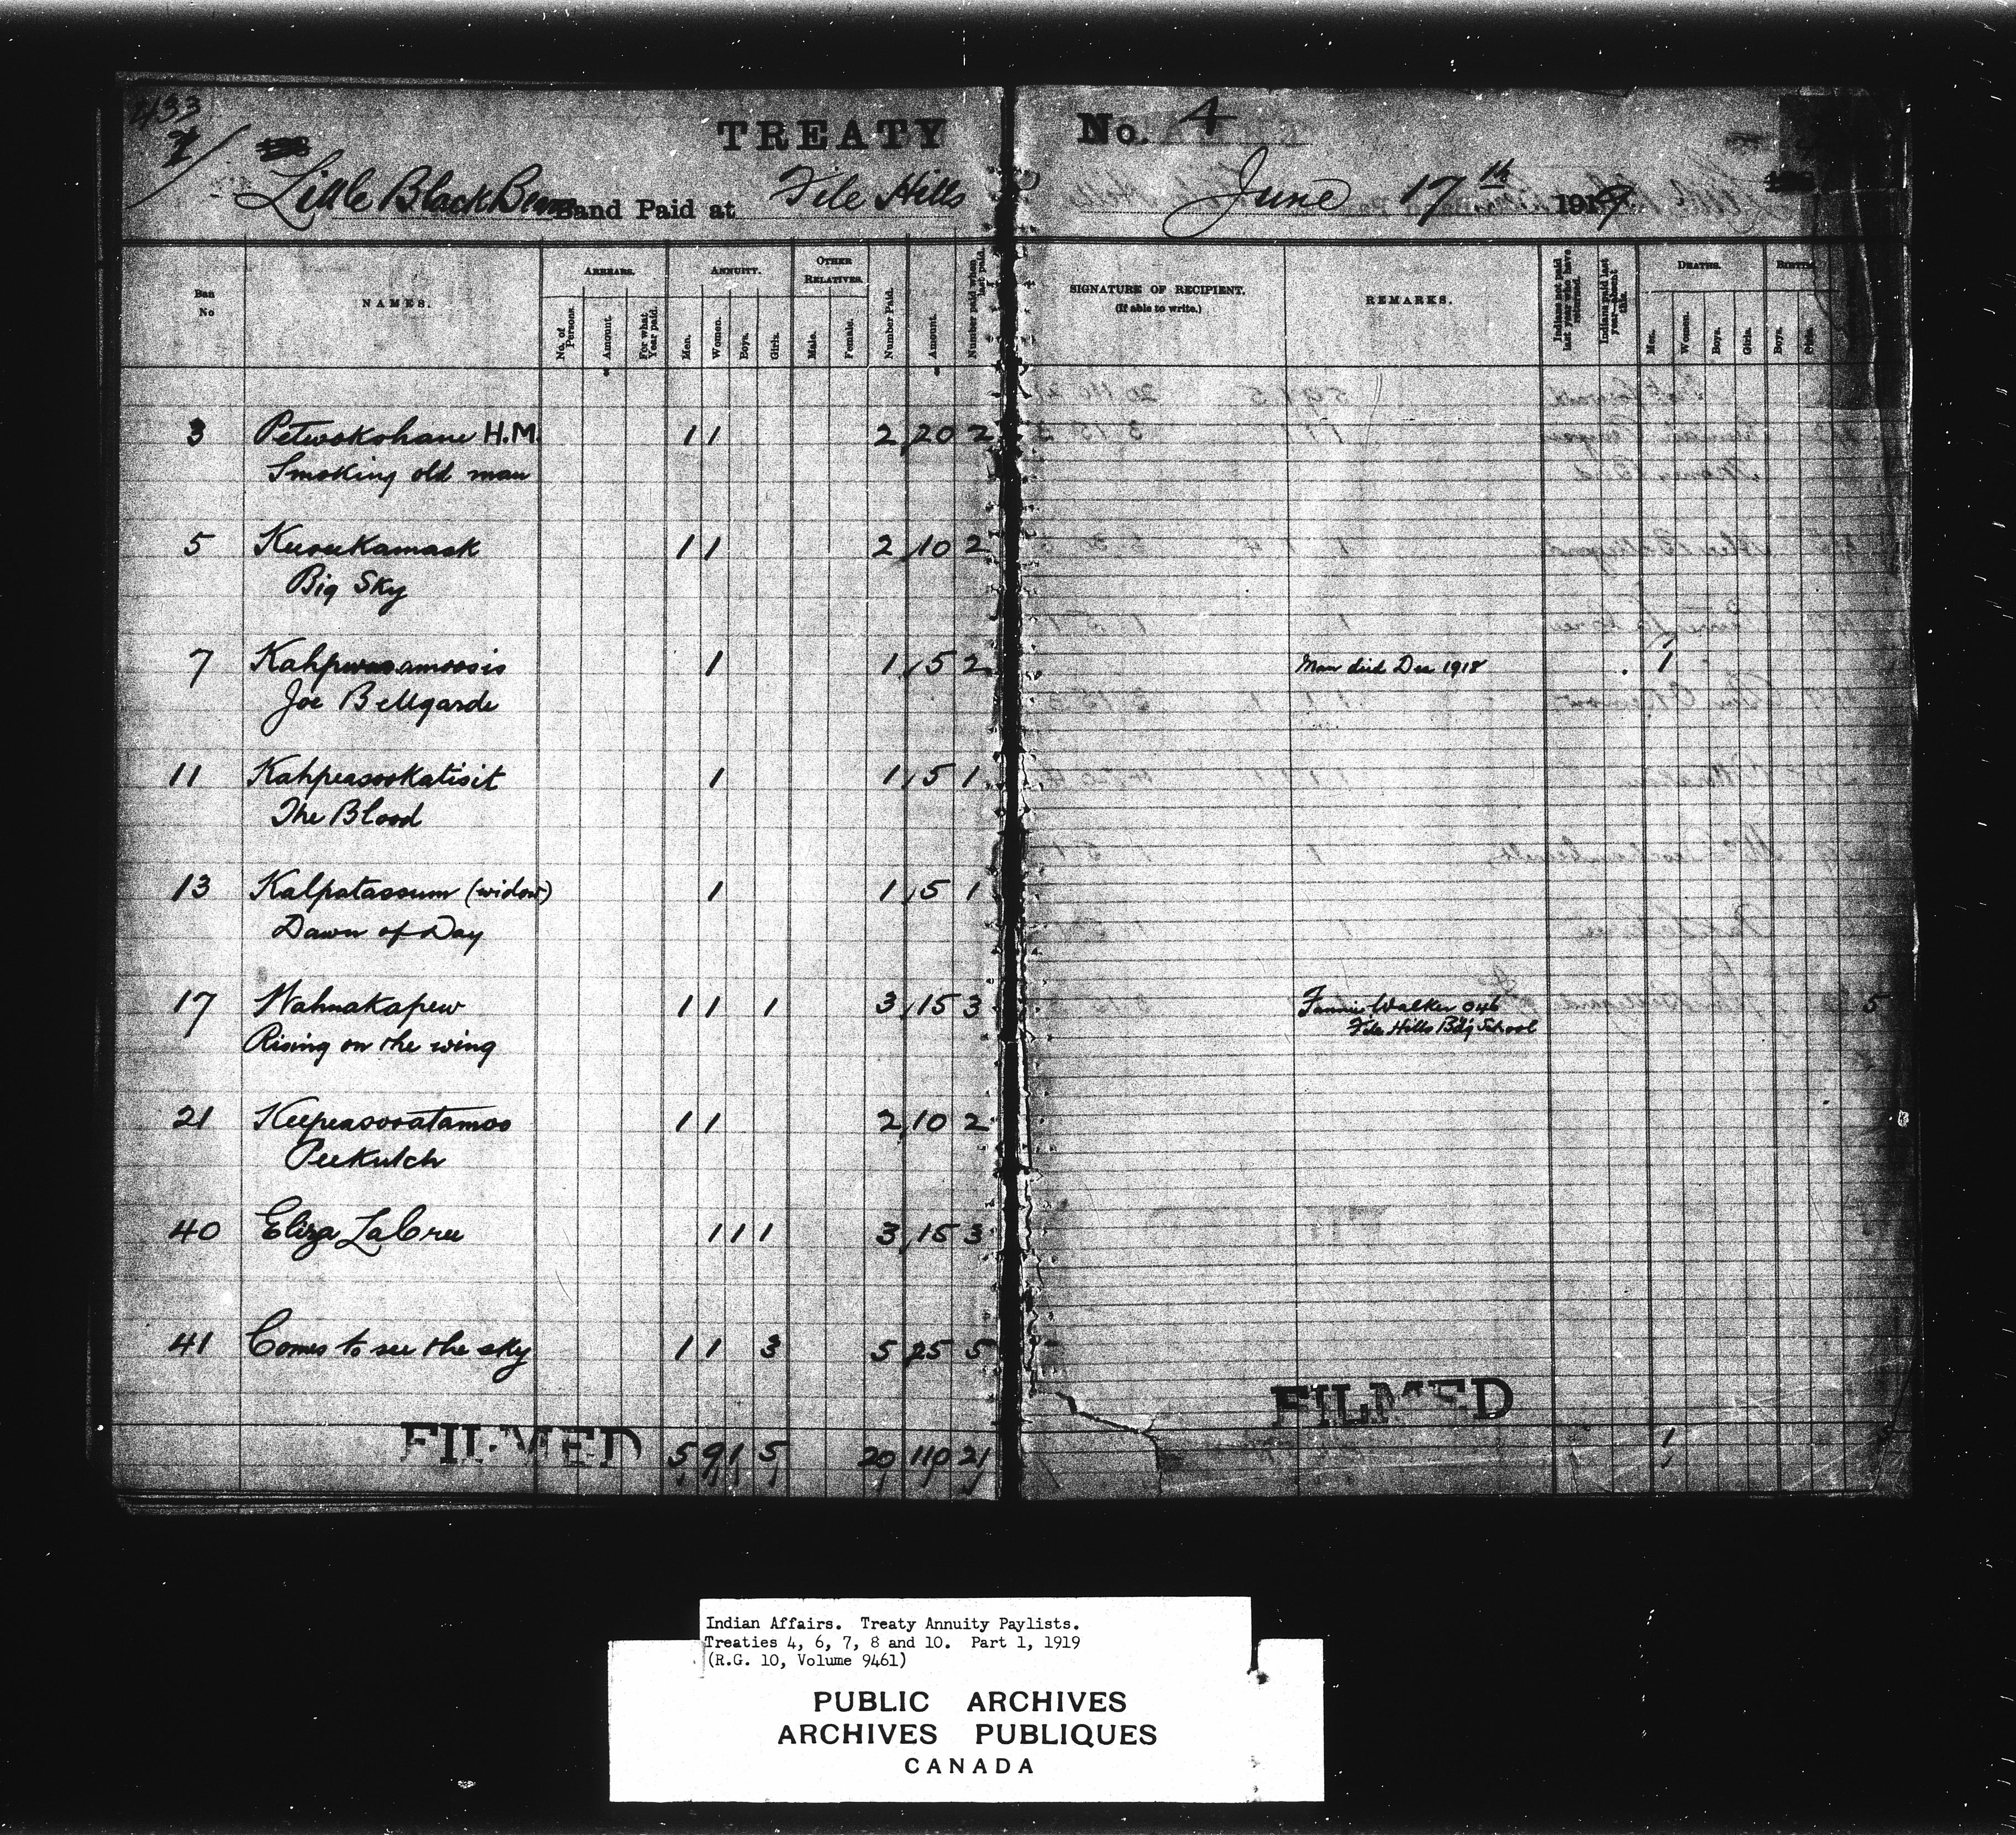 433
TREATY No. 4
Little Black Bears Band Paid at File Hills June 17th 1919
Ban No NAMES. ARREARS. ANNUITY. OTHER RELATIVES. SIGNATURE OF RECIPIENT. (If able to write.) REMARKS. DEATHS. BIRTHS
No. of Persons. Amount. For what Year paid. Men. Women. Boys. Girls. Male. Female. Number Paid. Amount. Number paid when last paid. Indians not paid last year who have returned. Indians paid last year—absent this. Men. Women. Boys. Girls. Boys. Girls.
3 Petwokohane H.M. 1 1 2 20 2
Smoking old man
5 Keeseekamask 1 1 2 10 2
Big Sky
7 1 1 5 2 Man died Dec 1918 1
Joe Bellgarde
11 Kahpeasookatisit 1 1 5 1
The Blood
13 Kalpatassum (widow) 1 1 5 1
Dawn of Day
17 Wahnakapew 1 1 1 3 15 3 Fannie Walker 046 5
Rising on the wing File Hills Bdg School
21 Keepeasooatamoo 1 1 2 10 2
Peekutch
40 Eliza LaCree 1 1 1 3 15 3
41 Comes to see the sky 1 1 3 5 25 5
FILMED FILMED
5 9 1 5 20 110 21 1 5
Indian Affairs. Treaty Annuity Paylists.
Treaties 4, 6, 7, 8 and 10. Part 1, 1919
(R.G. 10, Volume 9461)
PUBLIC ARCHIVES
ARCHIVES PUBLIQUES
CANADA